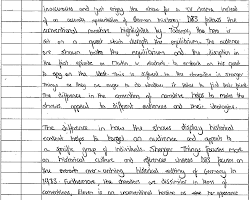 inaccuracies and just enjoy the show for a TV drama instead
of an accurate representation of German history. D83 follows the
conventional narrative highlighted by Todorov, the hero is
set on a quest which disrupts the equilibrium. The audience
are shown both the equilibrium and the disruption in
the first episode as Martin is shocked to embark on his quest
to spy on the West. This is different to the characters in Stranger
Things as they are eager to do whatever it takes to find
The difference in the convention of narrative helps to make the
shows appeal to different audiences and their ideologies.
The difference in how the shows display historical
context helps to target an audience and appeal to
a specific group of individuals. Stranger Things focuses more
on historical culture and references whereas D83 focuses on
the events over-arching historical setting of Germany in
1983. Furthermore, the characters are different in terms of
conventions. Eleven is an unconventional heroine as she